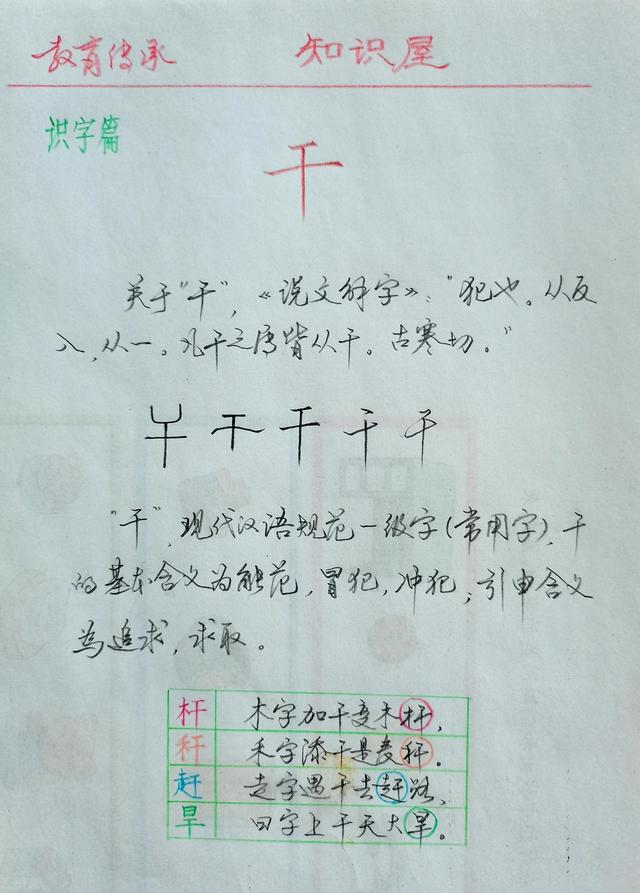 教育传承 知识屋
识字篇
干
关于"干",《说文解字》:"犯也。从反
入,从一。凡干之属皆从干。古寒切。"
干 干 干 干
"干",现代汉语规范一级字(常用字),干
的基本含义为触犯,冒犯,冲犯;引申含义
为追求,求取。
杆 木字加干变木杆,
秆 禾字添干是麦秆。
赶 走字遇干去赶路,
旱 日字上干天大旱。